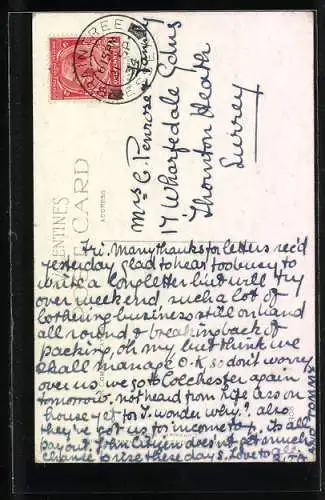 BRAINTREE
6 15 PM
34
ESSEX
Mrs C. Penrose & Family
17 Wharfedale Gdns
Thornton Heath
Surrey
VALENTINES
POST CARD
ADDRESS
Fri. Many thanks for letters rec'd
yesterday, glad to hear, too busy to
write a long letter but will try
over weekend, such a lot of
bothering business still on hand
all round & breaking back of
packing, oh my but think we
shall manage O.K. so don't worry
over us. we go to Colchester again
tomorrow. not heard from Life Assn on
house yet for I. wonder why? also
they've got us for income tax, its all
pay out. John Citizen doesn't get much
chance to rise these days. Love to all
RITA AND TOMMY